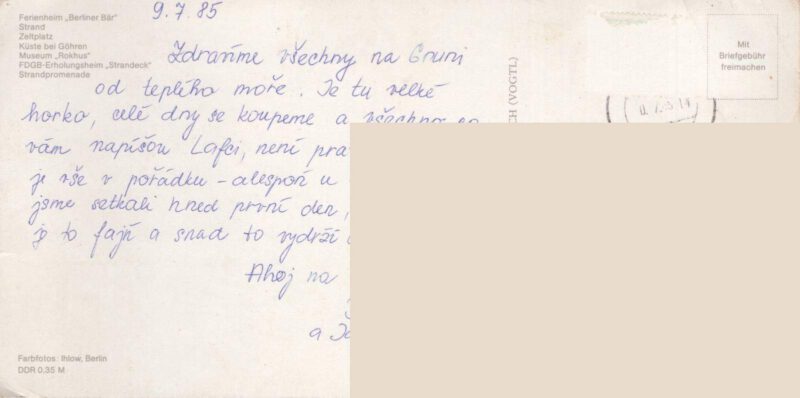 Ferienheim „Berliner Bär"
Strand
Zeltplatz
Küste bei Göhren
Museum „Rokhus"
FDGB-Erholungsheim „Strandeck"
Strandpromenade
9.7.85
Zdravíme všechny na Gruni
od teplího moře. Je tu velké
horko, celé dny se koupeme a všechno
vám napíšou Lafci, není
je vše v pořádku - alespoň u
jsme setkali hned první den,
je to fajň a snad to vydrží
Ahoj na
a
Mit
Briefgebühr
freimachen
CH (VOGTL)
Farbfotos Ihlow, Berlin
DDR 0,35 M